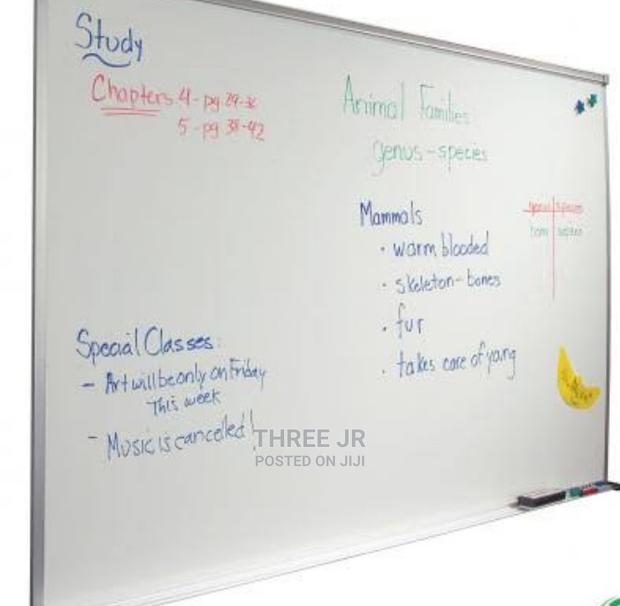 Study
Chapters 4 - pg 29-36
5 - pg 38-42
Animal Families
genus - species
Mammals
• warm blooded
• skeleton - bones
• fur
• takes care of young
genus species
homo sapien
Special Classes:
- Art will be only on Friday
This week
- Music is cancelled!
THREE JR
POSTED ON JIJI